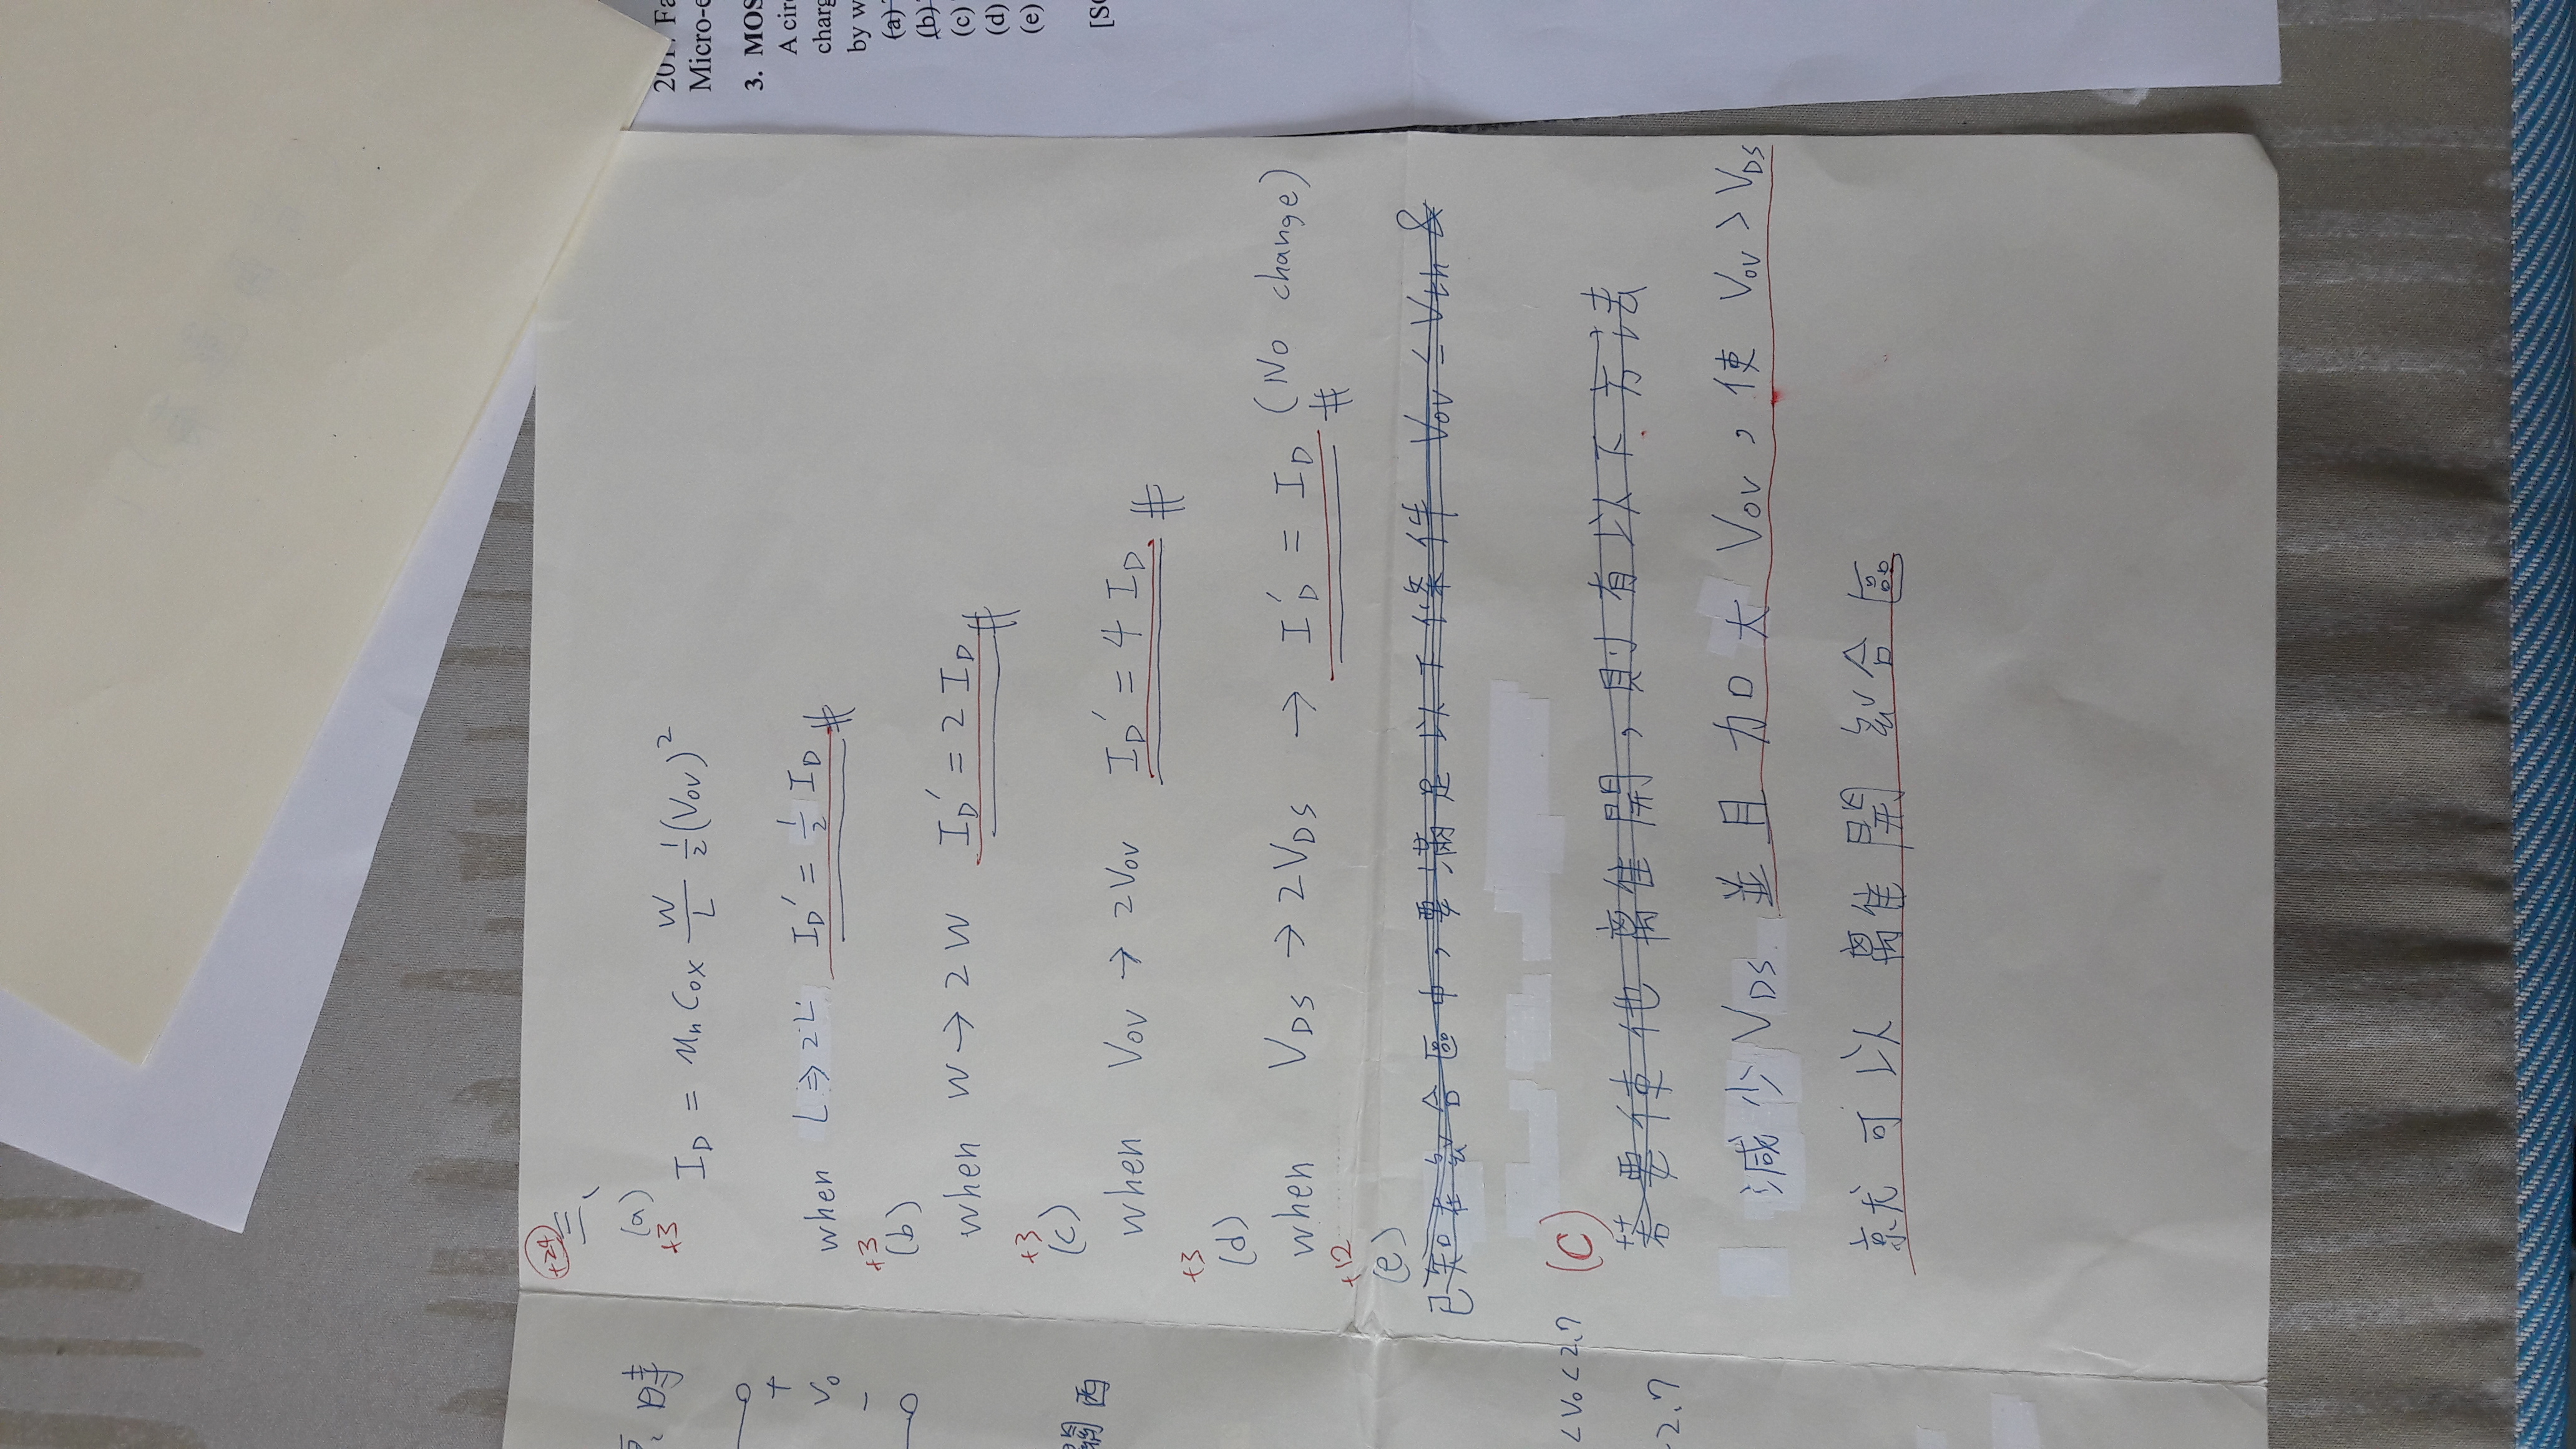 時
+
Vo
-
關西
<Vo<2.7
2.7
+24
三、
(a)
+3
I_D = μn Cox W/L 1/2 (Vov)²
when L ⇒ 2L I_D' = 1/2 I_D #
+3
(b)
when W → 2W I_D' = 2 I_D #
+3
(c)
when Vov → 2Vov I_D' = 4 I_D #
+3
(d)
when V_DS → 2V_DS → I_D' = I_D (No change) #
+12
(e)
已知在夾合區中,要滿足以下條件 Vov ≤ Vth &
(C)
若要使他離開,則有以下方法
減少 V_DS 並且加大 Vov,使 Vov > V_DS
就可以離開夾合區
Fa
Micro-e
3. MOS
A cir
charg
by w
(a)
(b)
(c)
(d)
(e)